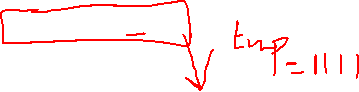 tmp
=1111